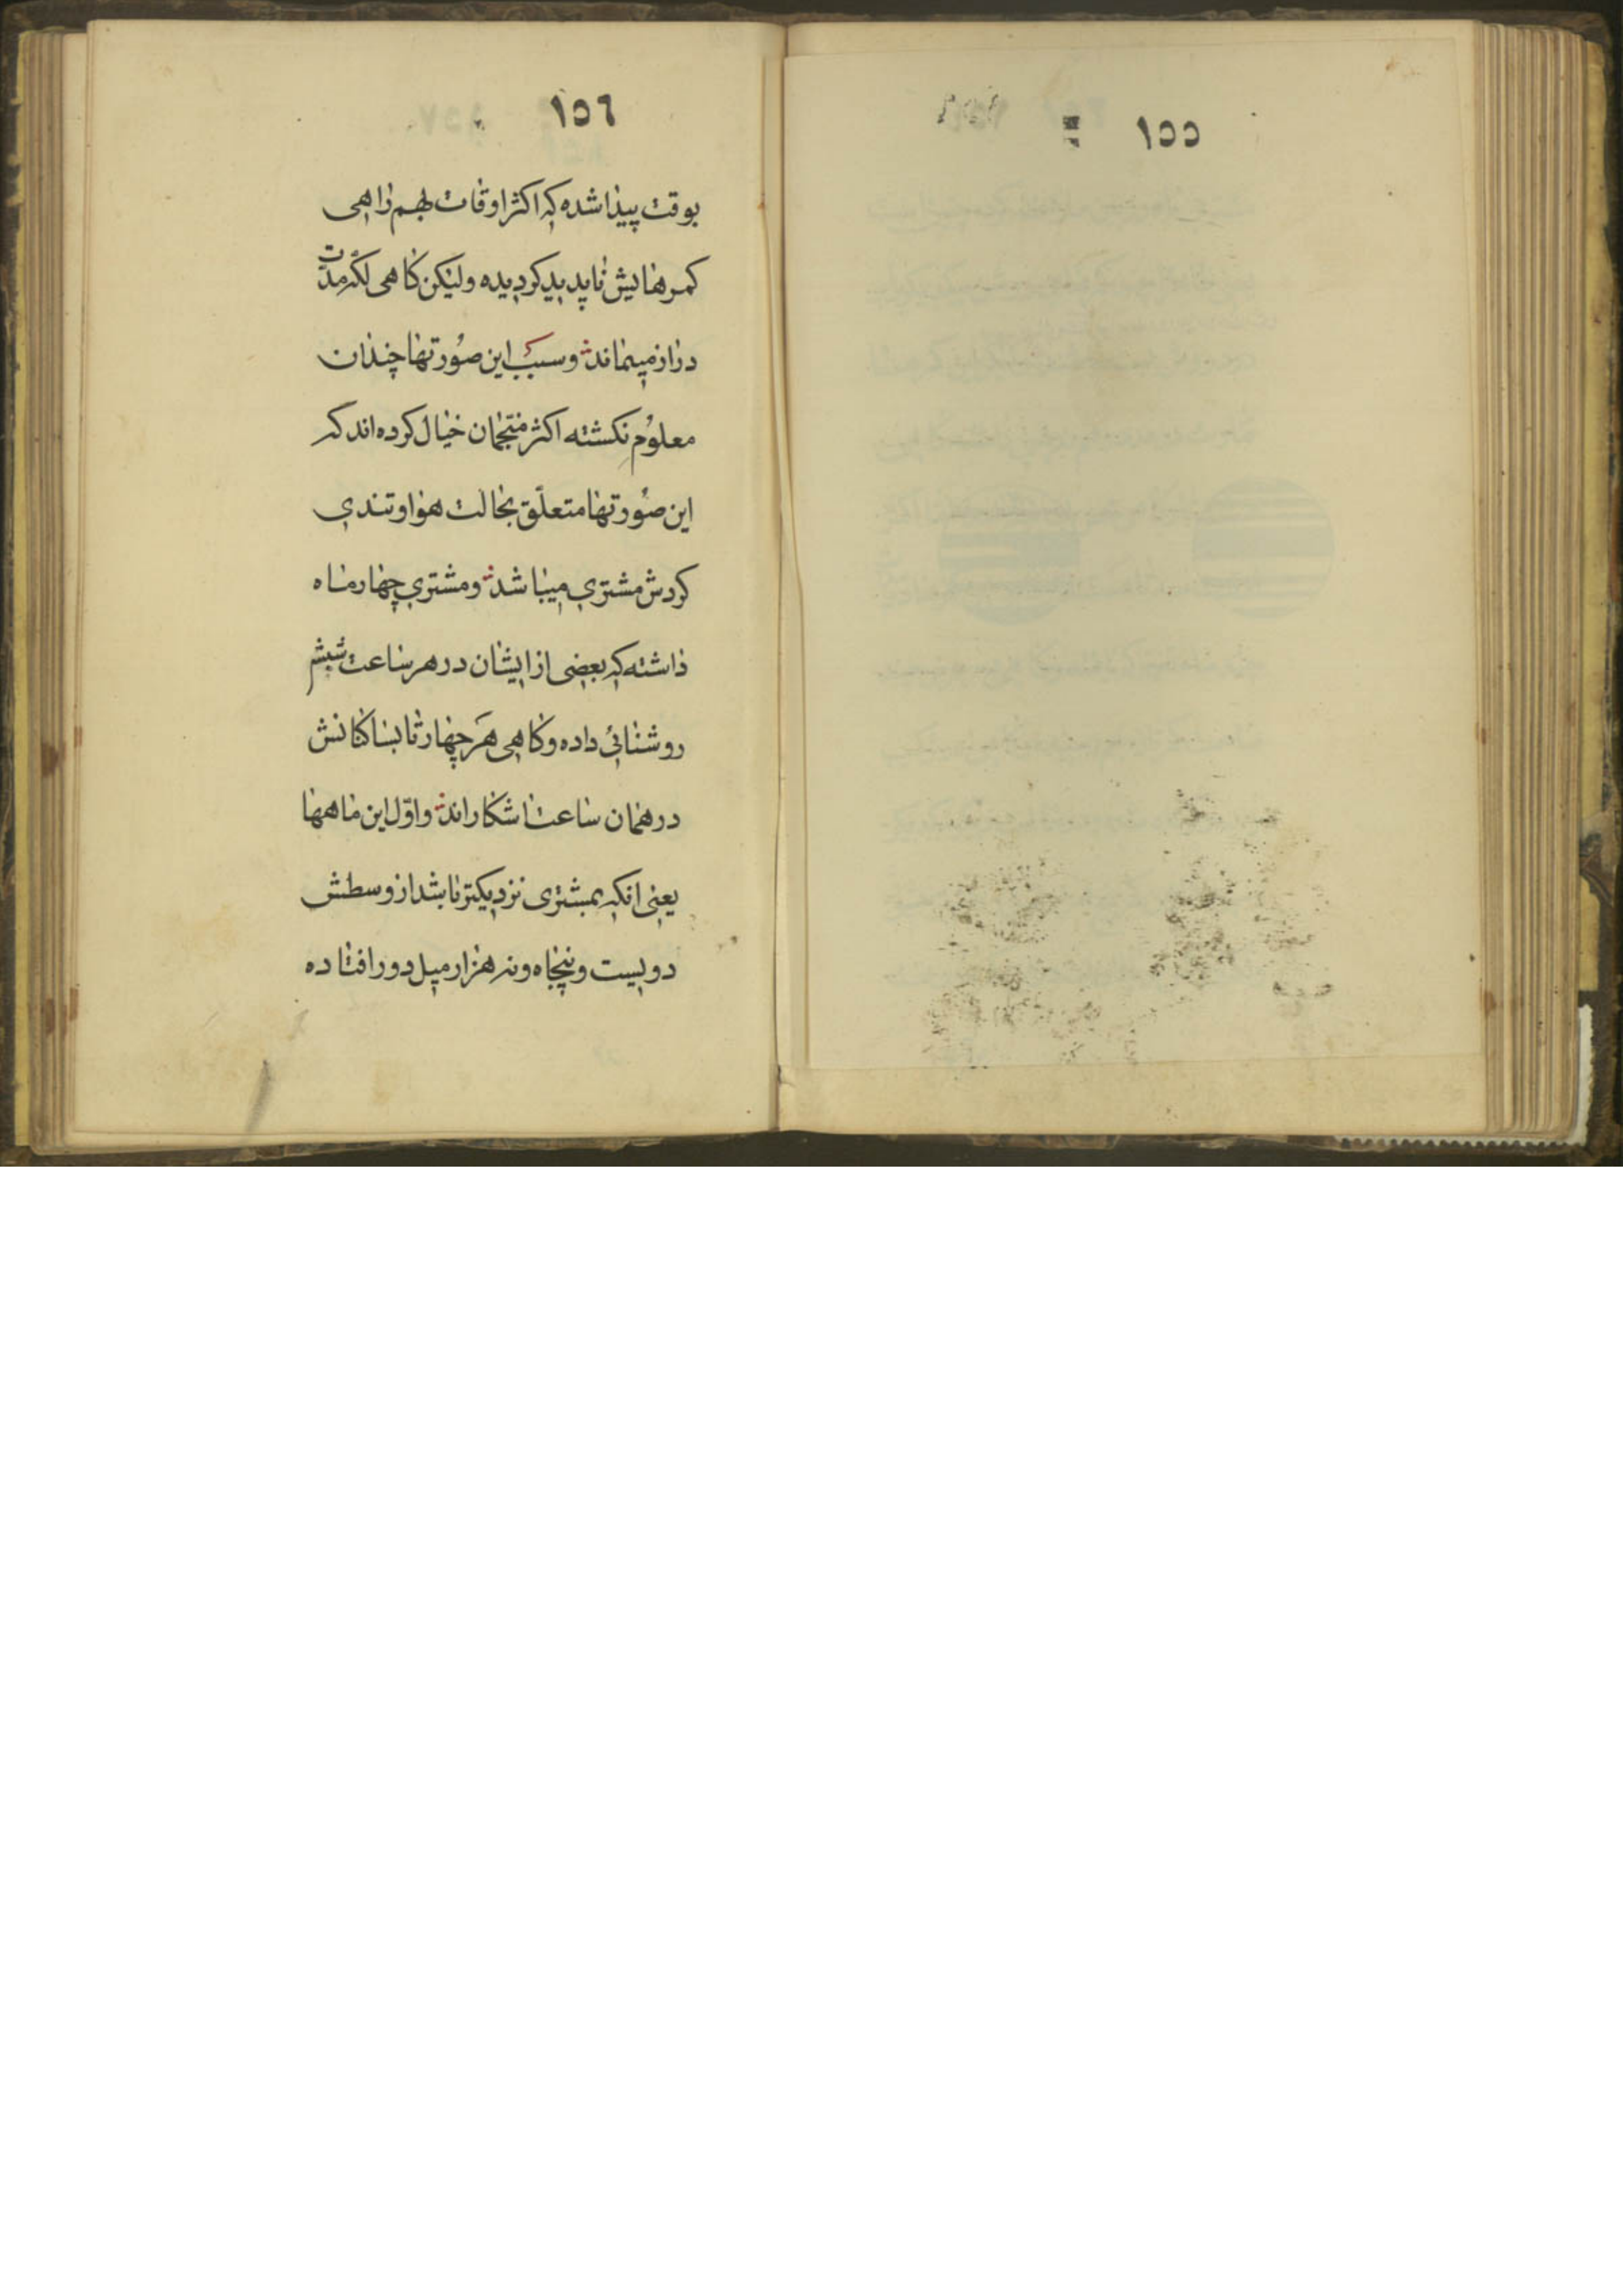 ١٥٥
١٥٦
بوقت پیدا شده که اکثر اوقات بهم راهی
کمرهایش ناپدید کردیده ولیکن کاهی لکه مدّت
دراز میماند و سبب این صُورتها چندان
معلوُم نکشته اکثر منجّمان خیال کرده اند که
این صُورتها متعلّق بحالت هوا و تندی
کردش مشتری میباشد و مشتری چهار ماه
داشته که بعضی از ایشان در هر ساعت شبش
روشنائی داده و کاهی هَر چهار تا بساکنانش
در همان ساعت اشکار اند و اوّل این ماهها
یعنی انکه بمشتری نزدیکتر باشد از وسطش
دویست و پنجاه و نه هزار میل دور افتاده